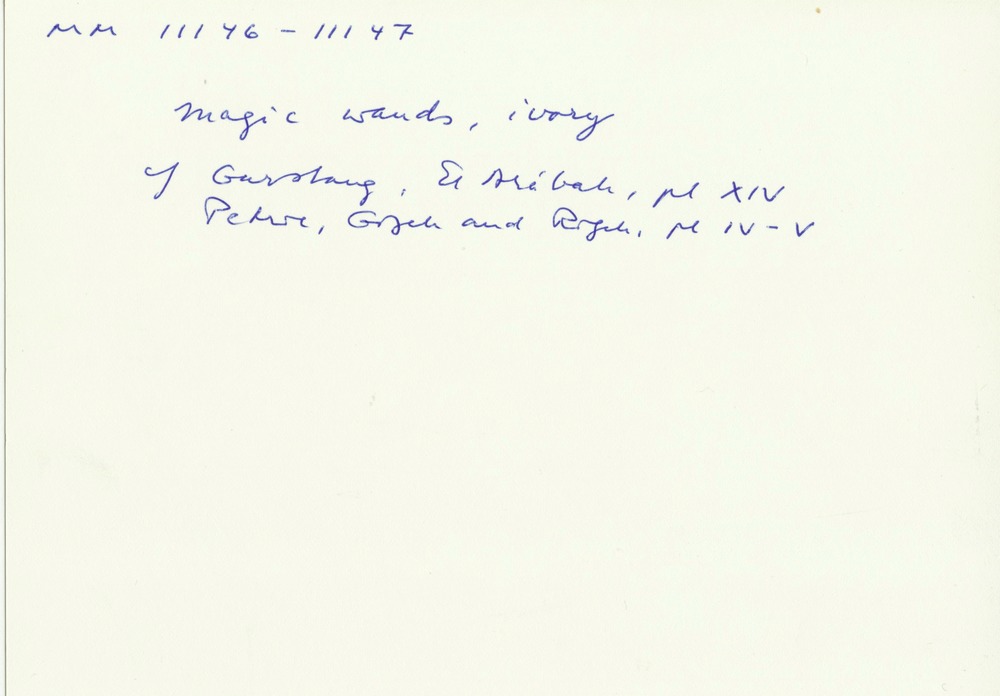 MM 11146 - 11147
magic wands, ivory
cf Garstang, El Arábah, pl XIV
Petrie, Gizeh and Rifeh, pl IV - V